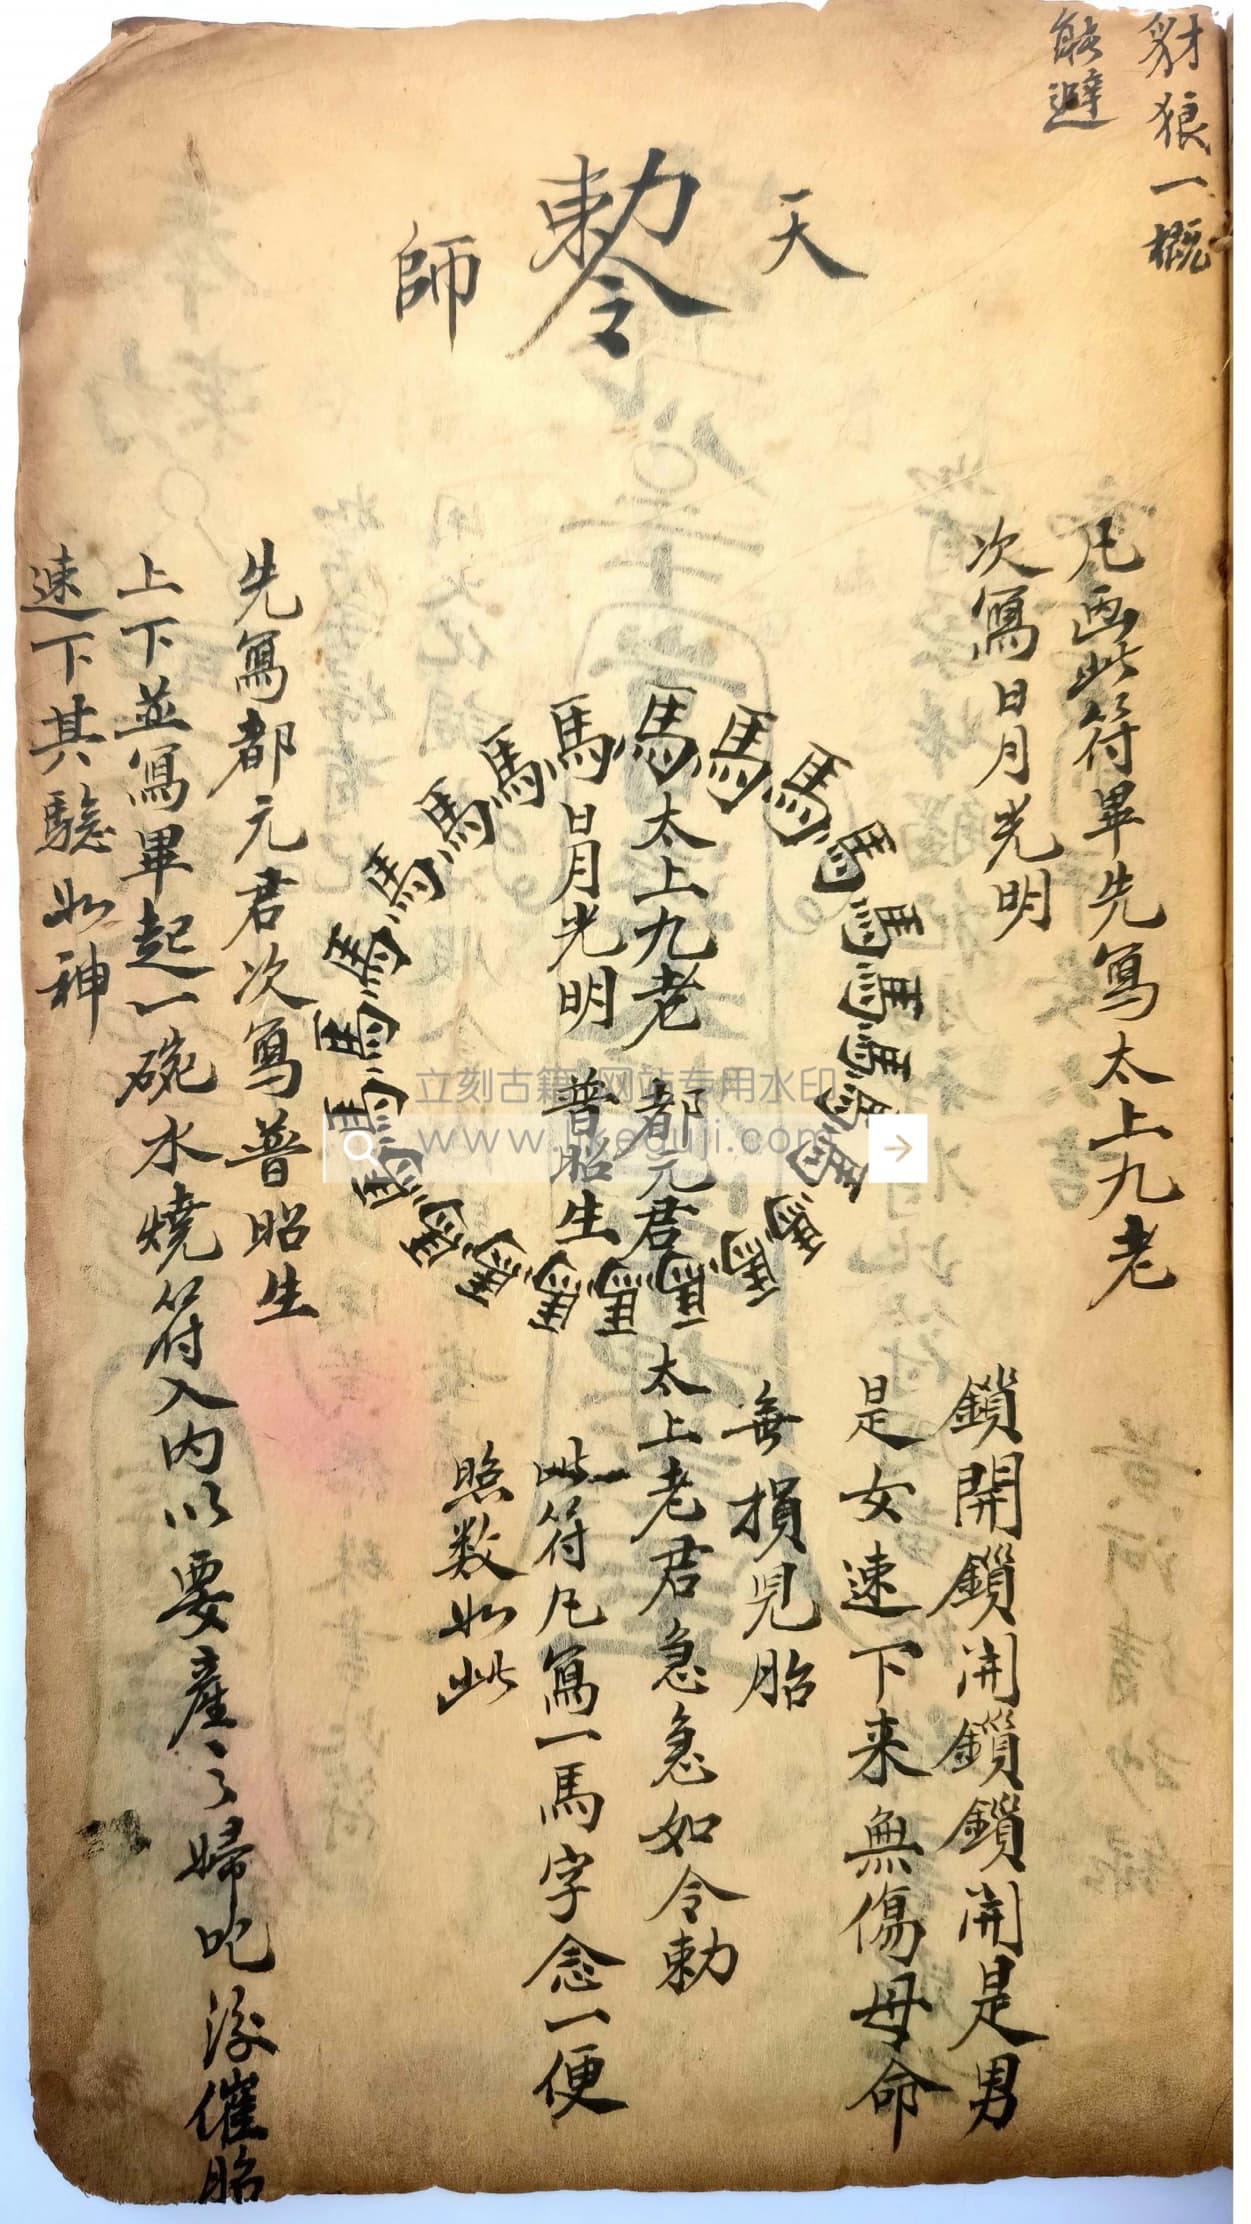 豺狼一概
能避
天
勅令
師
凡画此符畢先寫太上九老
次寫日月光明
馬馬馬馬馬馬馬馬馬馬馬馬馬馬馬馬馬馬馬馬馬馬馬馬馬馬馬馬
太上九老 都元君
日月光明 普昭生
鎖開鎖開鎖鎖開是男
是女速下来無傷母命
無損児胎
太上老君急急如令勅
此符凡寫一馬字念一便
照数如此
先寫都元君次寫普昭生
上下並寫畢起一碗水燒符入内以要産之婦吃後催胎
速下其驗如神
立刻古籍 网站专用水印
www.likeguji.com